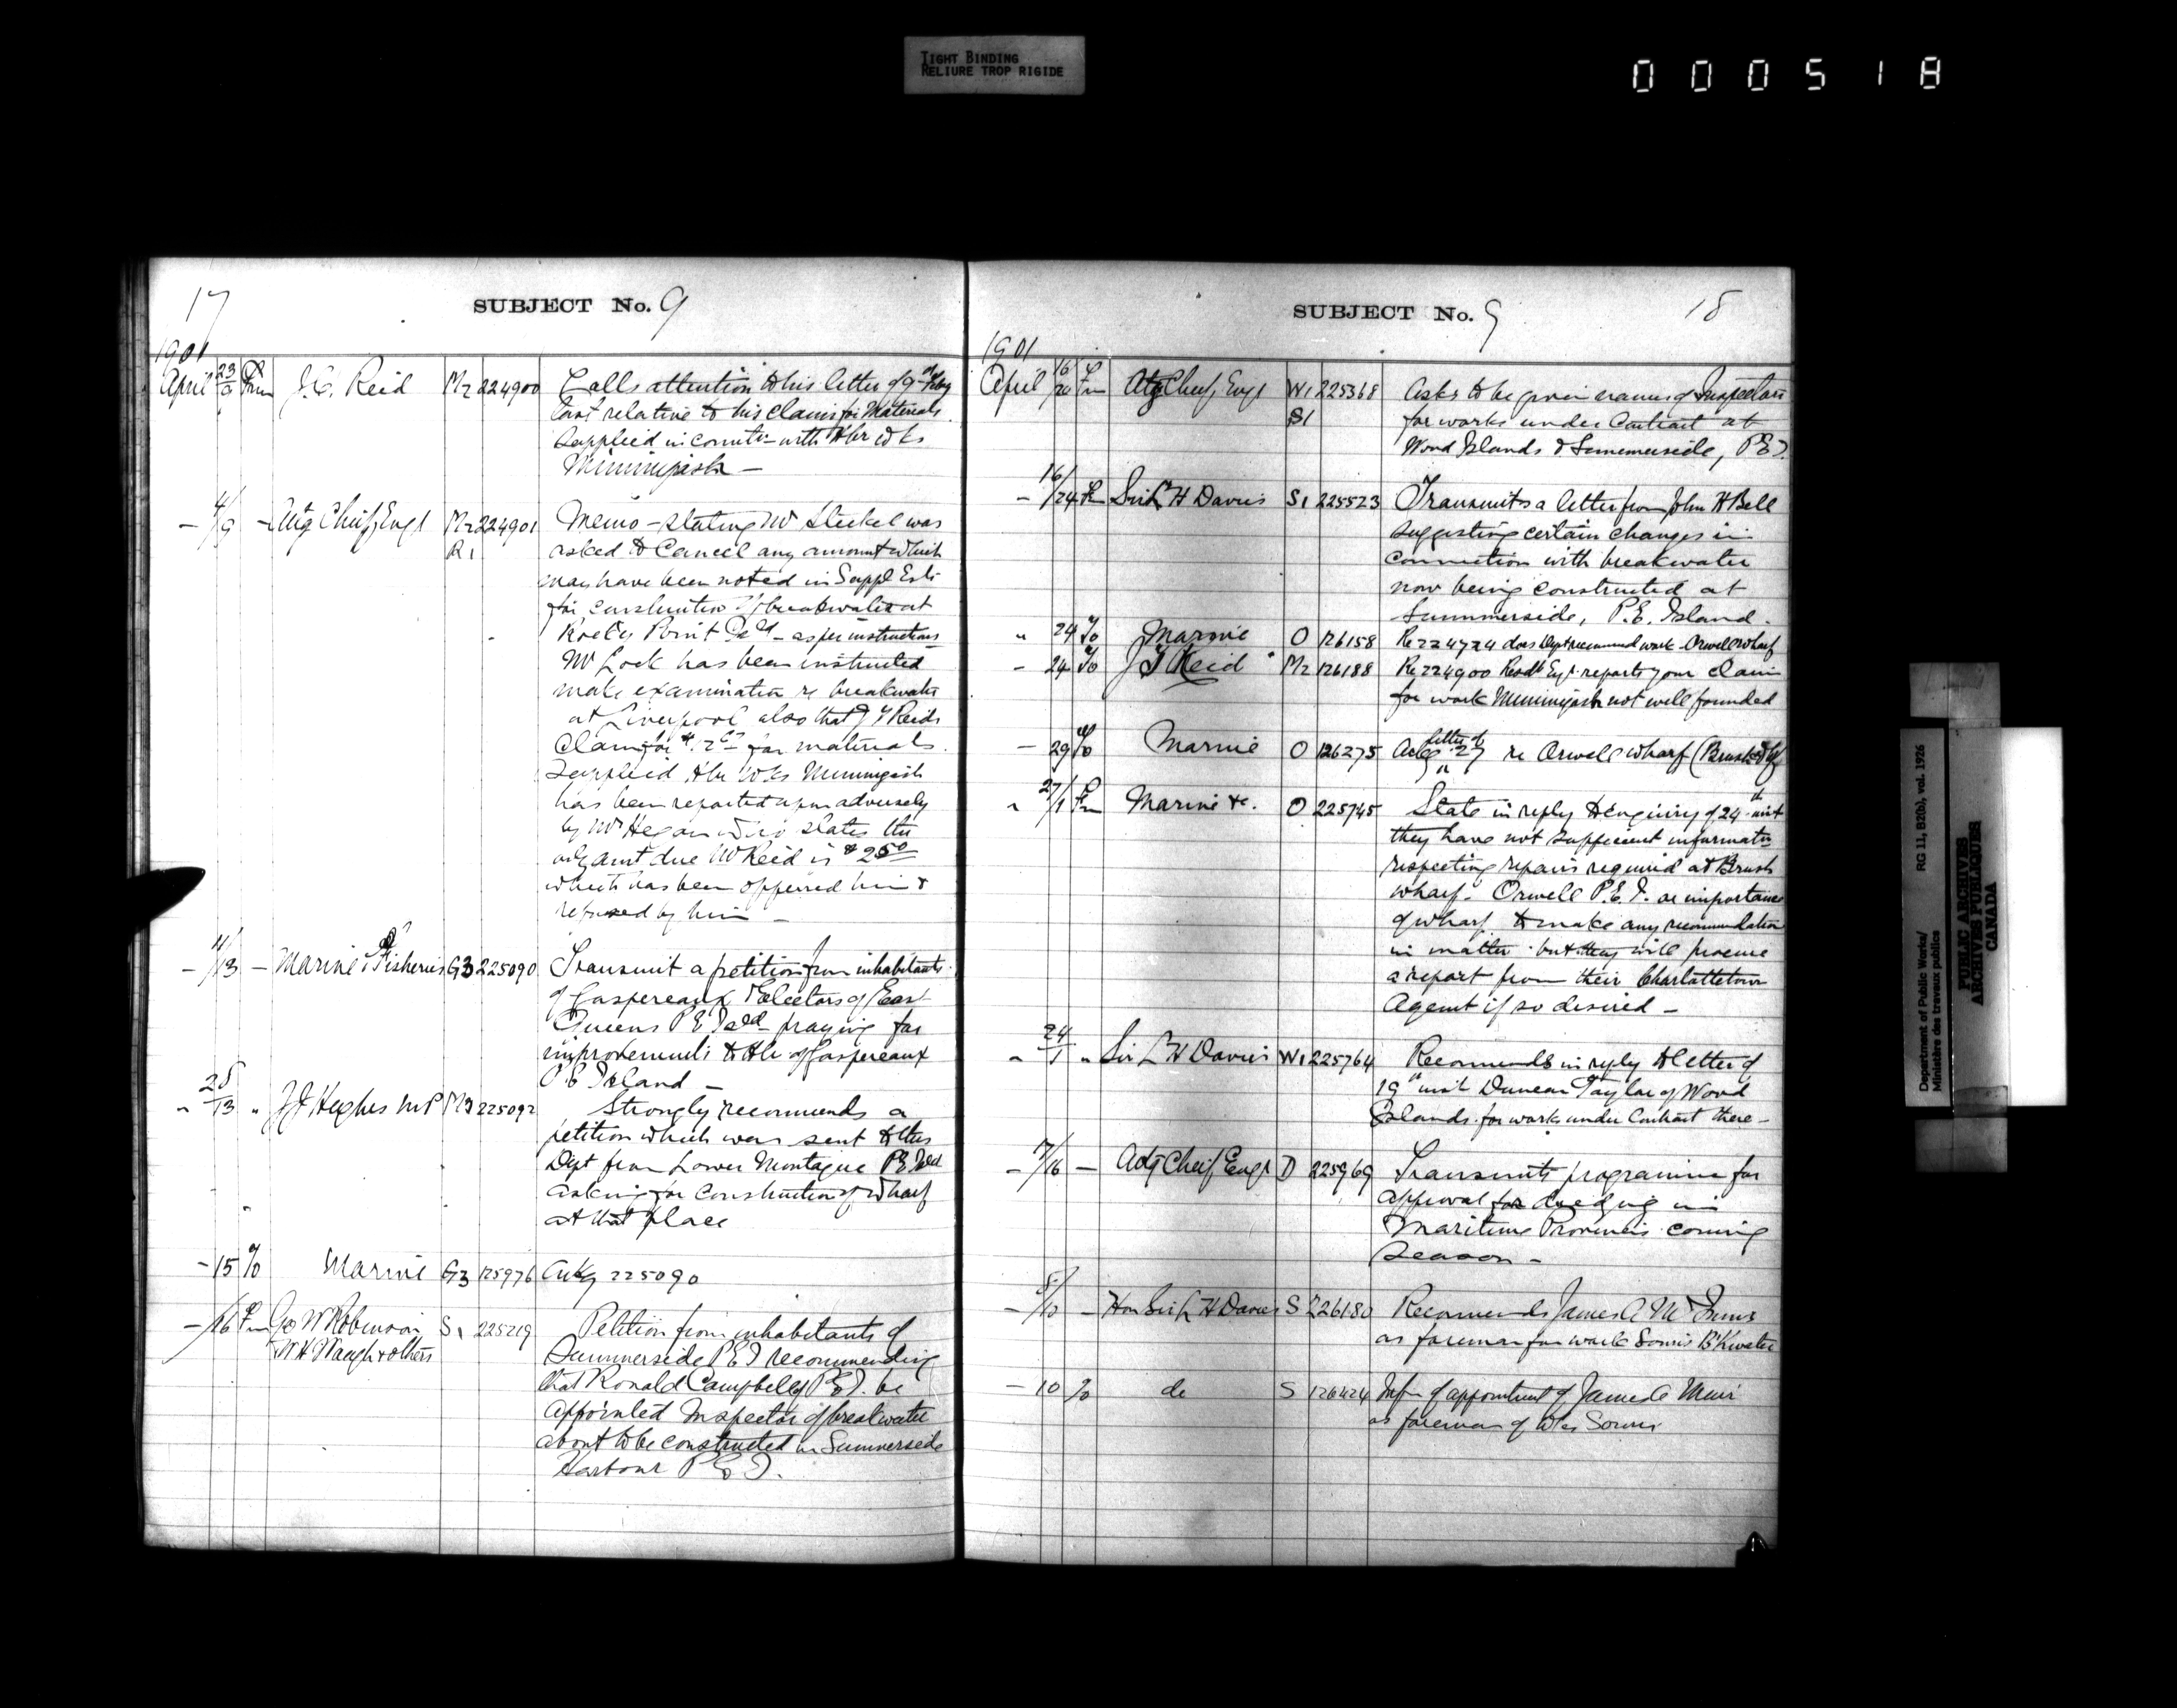 TIGHT BINDING
RELIURE TROP RIGIDE
000518
17
SUBJECT No. 9
1901
April 23/9 Fm J.C. Reid M2 224900 Calls attention to his letter of 9th Feby
last relative to his claim for Materials
supplied in connectn with Hbr Wks
Miminigash —
— 4/9 — Actg Chief Engr M2 224901 Memo — stating Mr Steckel was
R1 asked to Cancel any amount which
may have been noted in Suppl Ests
for construction of breakwater at
Rocky Point Isld — as per instructions
Mr Lock has been instructed
make examination re breakwater
at Liverpool also that J Y Reids
Claim for for materials
supplied Hbr Wks Miminigash
has been reported upon adversely
by Mr Hegan who states the
only amt due Mr Reid is $2.50
which has been offerred him &
refused by him —
— 4/13 — Marine & Fisheries G3 225090 Transmit a petition from inhabitants
of Gaspereaux & Electors of East
Queens P E Isld praying for
improvements to Hbr of Gaspereaux
P.E. Island —
" 25/13 " J J Hughes M P M3 225092 Strongly recommends a
petition which was sent to this
Dept from Lower Montague P E Isld
asking for construction of wharf
at that place
— 15 To Marine G3 125976 Ackg 225090
— /16 Fm Geo W Robinson S1 225219 Petition from inhabitants of
W H Waugh & others Summerside P E I recommending
that Ronald Campbell of P.E.I. be
appointed Inspector of breakwater
about to be constructed in Summerside
Harbour P E I.
SUBJECT No. 9
18
1901
April 16/20 Fm Actg Chief Engr W1 225368 Asks to be given names of Inspectors
S1 for works under Contract at
Wood Islands & Summerside, P E I.
— 16/24 Fm Sir L H Davies S1 225523 Transmits a letter from John H Bell
suggesting certain changes in
connection with breakwater
now being constructed at
Summerside, P.E. Island.
" 24 To Marine O 126158 Re 224724 does Dept recommend work Orwell Wharf
— 24 To J Y Reid M2 126188 Re 224900 Resdt Eng. reports your claim
for work Miminigash not well founded
— 29 To Marine O 126275 Ackg letter of 27 re Orwell wharf (Brush Whf
" 27/1 Fm Marine &c. O 225745 State in reply to enquiry of 24th inst
they have not sufficient informatn
respecting repairs required at Brush
wharf. Orwell P.E.I. or importance
of wharf to make any recommendation
in matter but they will procure
a report from their Charlottetown
Agent if so desired —
" 24/1 " Sir L H Davies W1 225764 Recommends in reply to letter of
19th inst Duncan Taylor of Wood
Islands for works under Contract there —
— 7/16 — Actg Chief Engr D 225969 Transmits programme for
approval for dredging in
Maritime Provinces coming
season —
— 8/10 — Hon Sir L H Davies S 226180 Recommends James A
as foreman for work Souris B'Kwater
— 10 To do S 126424 Infm of appointment of James A Muir
as foreman of Wks Souris
Department of Public Works/ RG 11, B2(b), vol. 1926
Ministère des travaux publics
PUBLIC ARCHIVES
ARCHIVES PUBLIQUES
CANADA